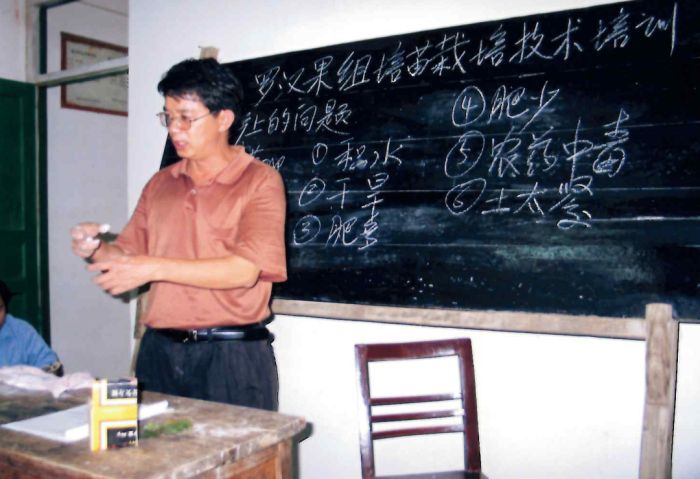 罗汉果组培苗栽培技术培训
的问题
①积水
②干旱
③肥
④肥少
⑤农药中毒
⑥土太紧